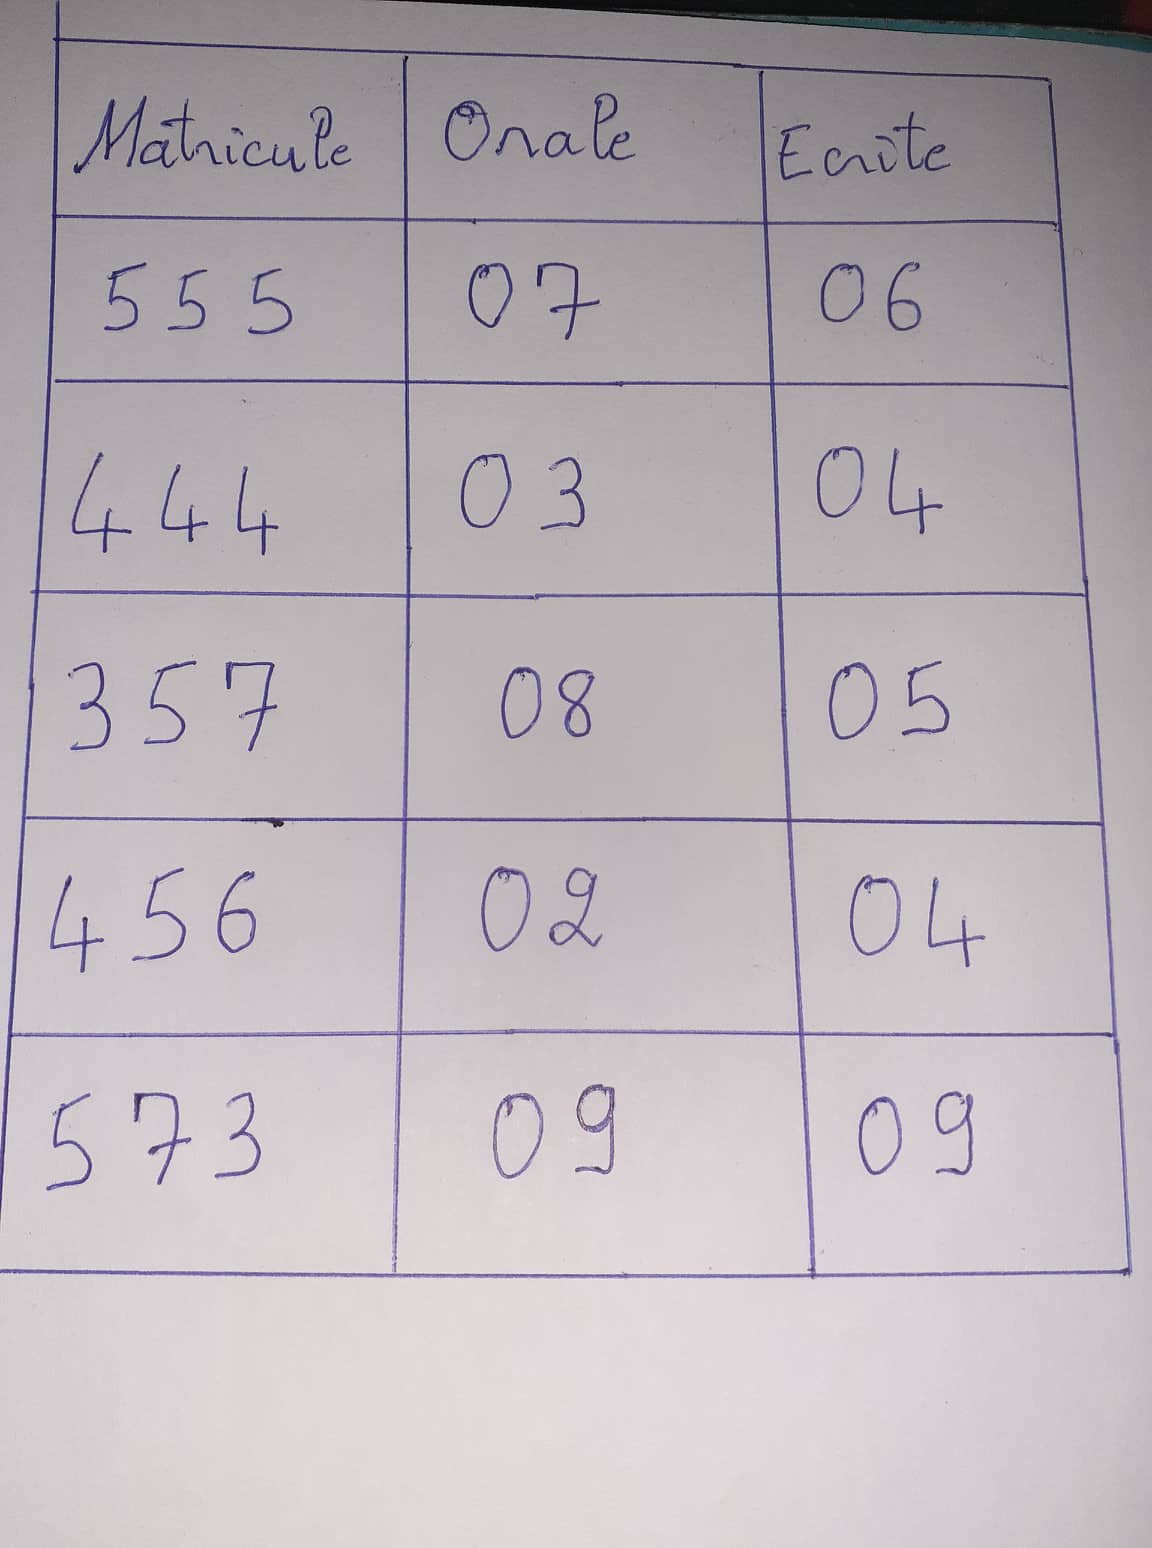 Matricule Orale Ecrite
555 07 06
444 03 04
357 08 05
456 02 04
573 09 09